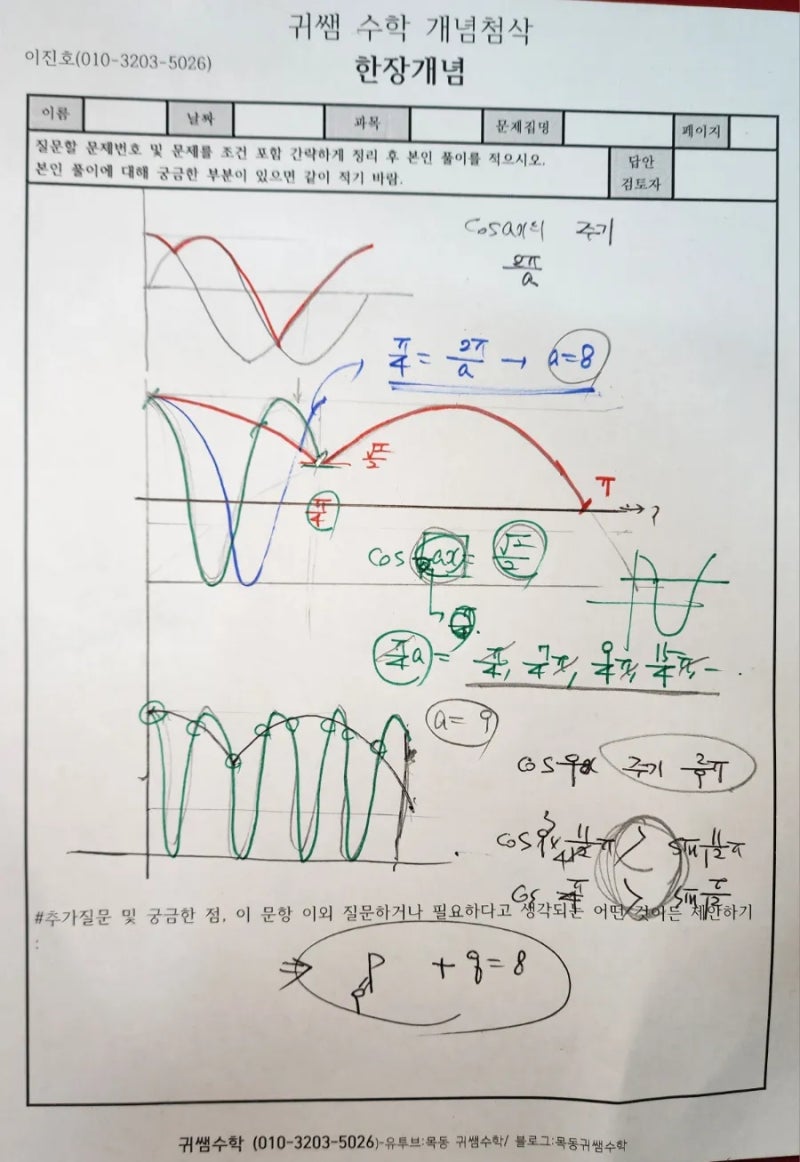 귀쌤 수학 개념첨삭
이진호(010-3203-5026)
한장개념
이름 날짜 과목 문제집명 페이지
질문할 문제번호 및 문제를 조건 포함 간략하게 정리 후 본인 풀이를 적으시오.
본인 풀이에 대해 궁금한 부분이 있으면 같이 적기 바람.
답안
검토자
cosax의 주기
2π/a
π/4 = 2π/a → a=8
√2/2
π
π/4
cos ax = √2/2
π/4 a = π/4, 7/4π, 9/4π, 15/4π, - .
a= 9
cos9x 주기 2/9π
11/12π > sin 11/12π
> sin π/12
#추가질문 및 궁금한 점, 이 문항 이외 질문하거나 필요하다고 생각되는 어떤 것이든 제안하기
:
⇒ + 9=8
귀쌤수학 (010-3203-5026)-유투브:목동 귀쌤수학/ 블로그:목동귀쌤수학